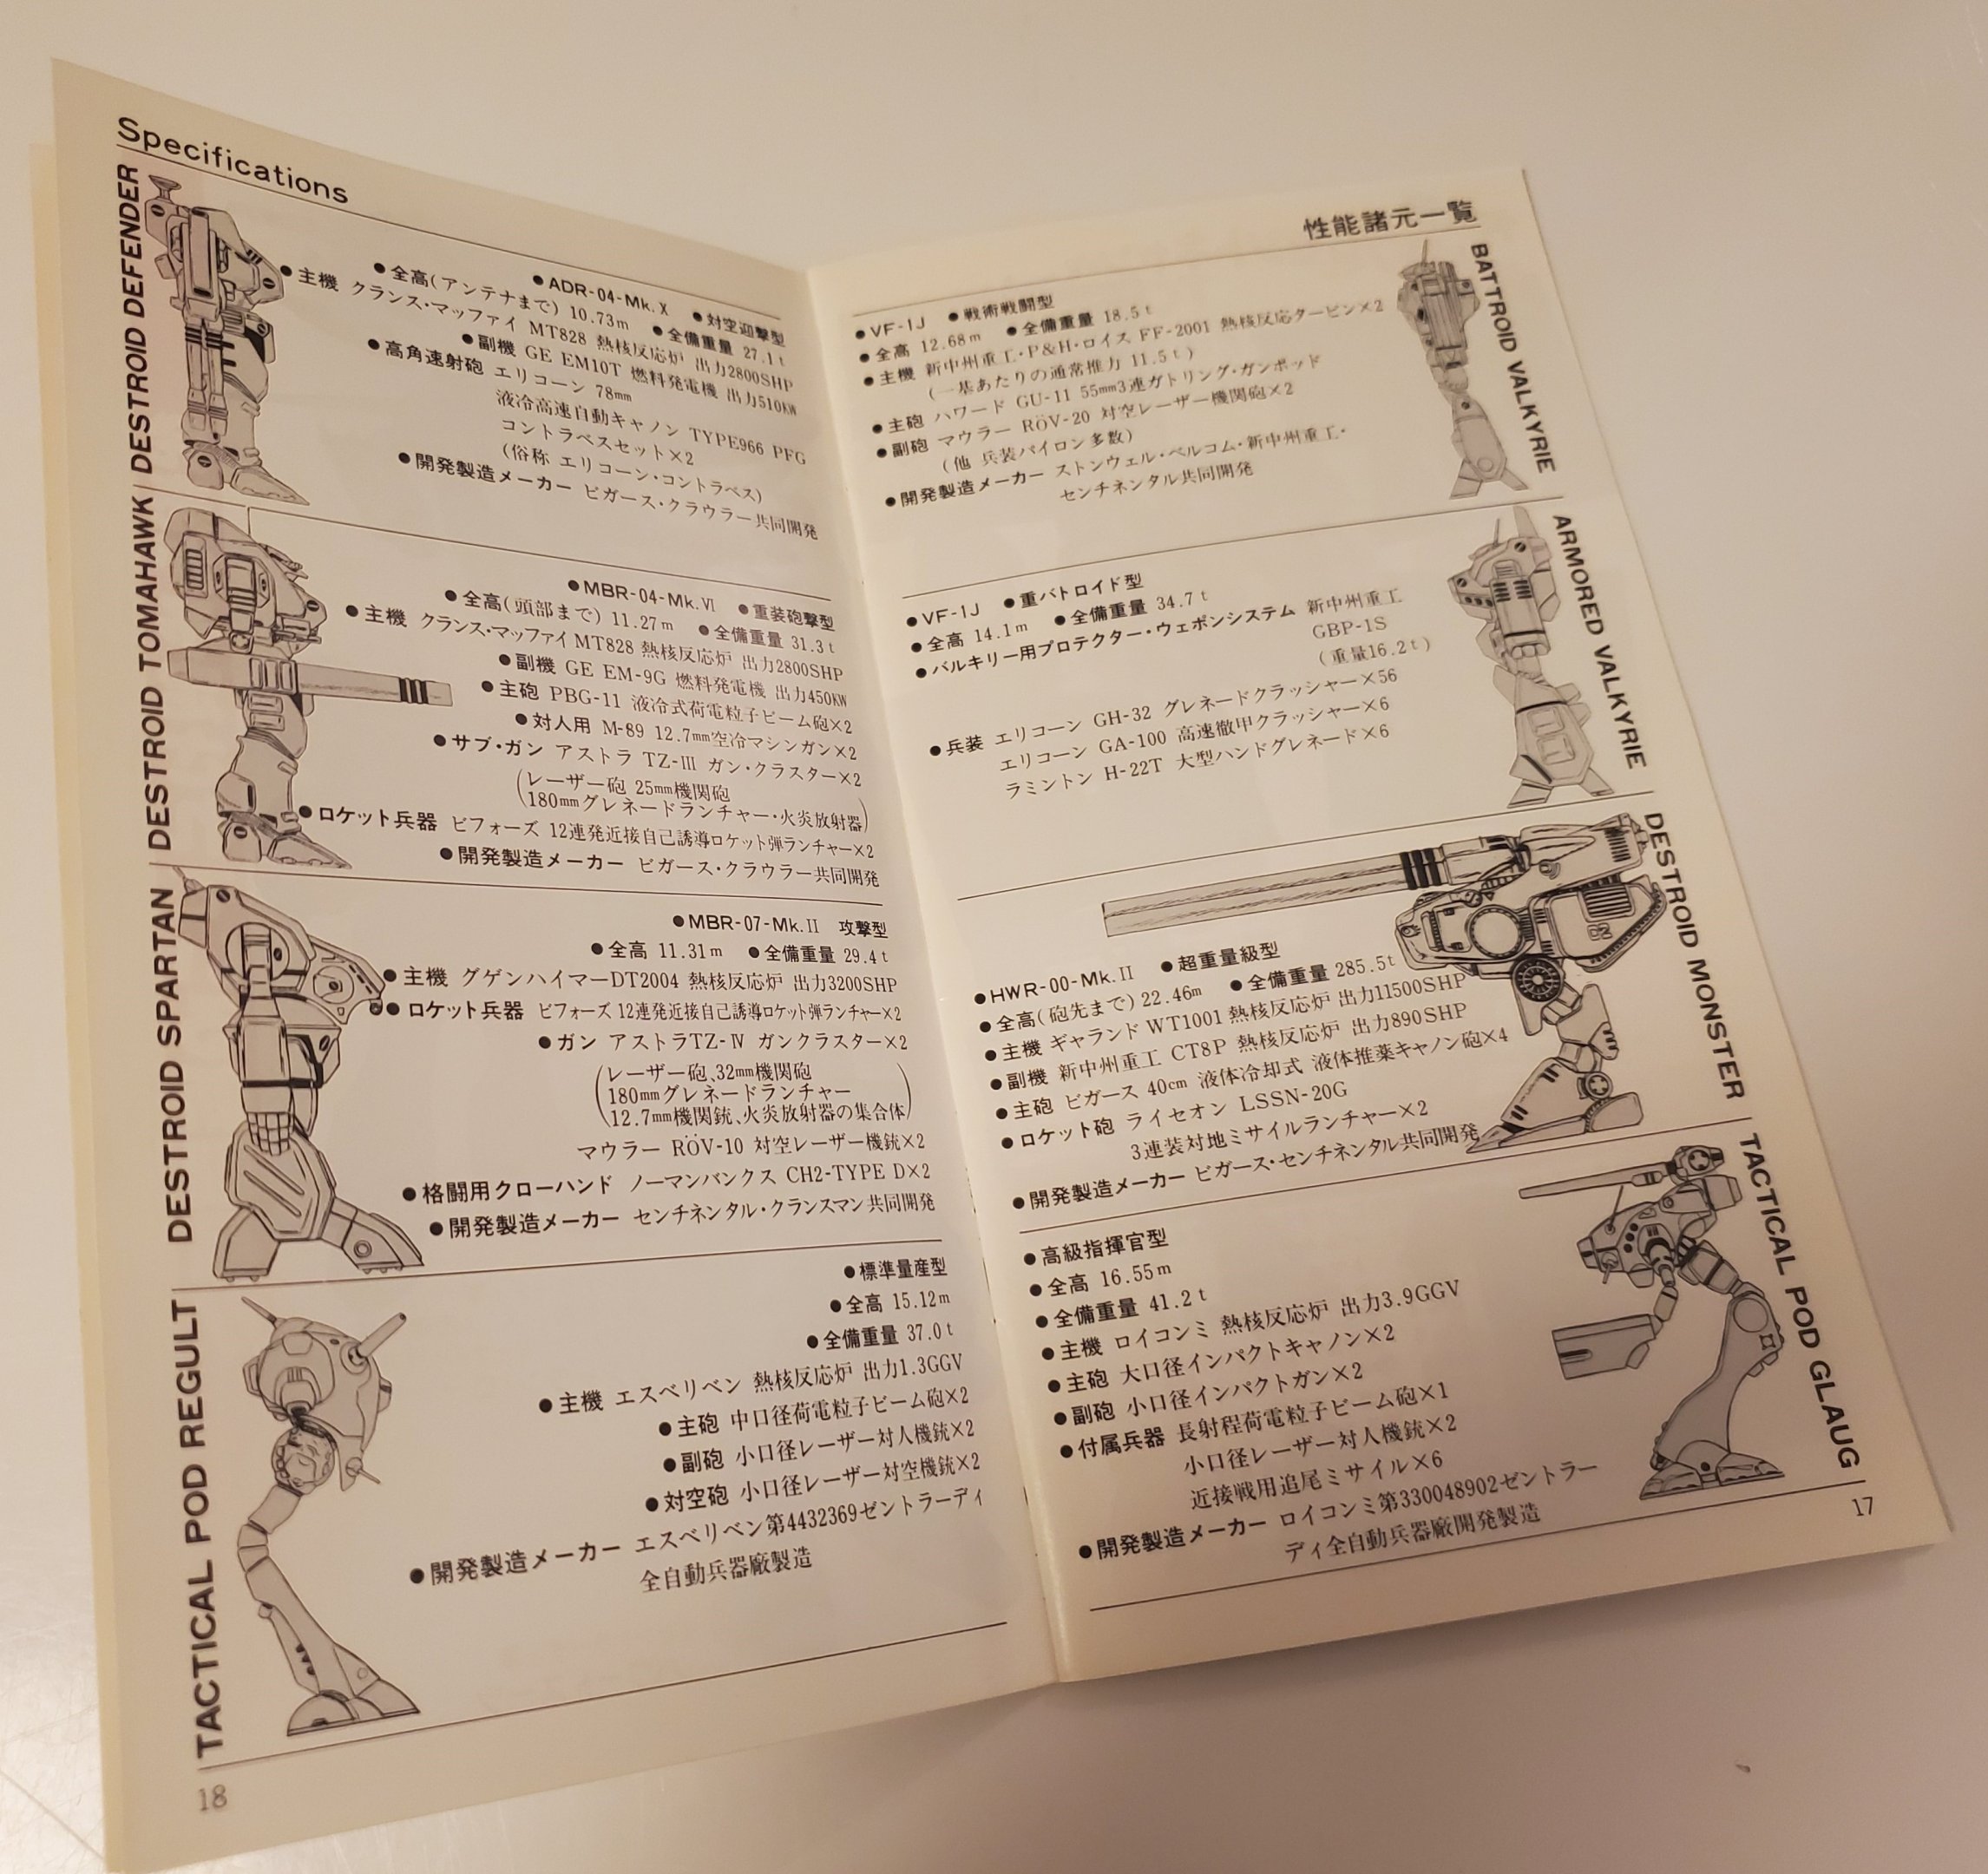 Specifications
DESTROID DEFENDER
●ADR-04-Mk.X ●対空迎撃型
●全高(アンテナまで) 10.73m ●全備重量 27.1t
●主機 クランス・マッファイ MT828 熱核反応炉 出力2800SHP
●副機 GE EM10T 燃料発電機 出力510KW
●高角速射砲 エリコーン 78mm
液冷高速自動キャノン TYPE966 PFG
コントラベスセット×2
(俗称 エリコーン・コントラベス)
●開発製造メーカー ビガース・クラウラー共同開発
DESTROID TOMAHAWK
●MBR-04-Mk.Ⅵ ●重装砲撃型
●全高(頭部まで) 11.27m ●全備重量 31.3t
●主機 クランス・マッファイMT828 熱核反応炉 出力2800SHP
●副機 GE EM-9G 燃料発電機 出力450KW
●主砲 PBG-11 液冷式荷電粒子ビーム砲×2
●対人用 M-89 12.7mm空冷マシンガン×2
●サブ・ガン アストラ TZ-Ⅲ ガン・クラスター×2
(レーザー砲 25mm機関砲
180mmグレネードランチャー・火炎放射器)
●ロケット兵器 ビフォーズ 12連発近接自己誘導ロケット弾ランチャー×2
●開発製造メーカー ビガース・クラウラー共同開発
DESTROID SPARTAN
●MBR-07-Mk.Ⅱ 攻撃型
●全高 11.31m ●全備重量 29.4t
●主機 グゲンハイマーDT2004 熱核反応炉 出力3200SHP
●ロケット兵器 ビフォーズ 12連発近接自己誘導ロケット弾ランチャー×2
●ガン アストラTZ-Ⅳ ガンクラスター×2
(レーザー砲、32mm機関砲
180mmグレネードランチャー
12.7mm機関銃、火炎放射器の集合体)
マウラー RÖV-10 対空レーザー機銃×2
●格闘用クローハンド ノーマンバンクス CH2-TYPE D×2
●開発製造メーカー センチネンタル・クランスマン共同開発
TACTICAL POD REGULT
●標準量産型
●全高 15.12m
●全備重量 37.0t
●主機 エスベリベン 熱核反応炉 出力1.3GGV
●主砲 中口径荷電粒子ビーム砲×2
●副砲 小口径レーザー対人機銃×2
●対空砲 小口径レーザー対空機銃×2
●開発製造メーカー エスベリベン第4432369ゼントラーディ
全自動兵器廠製造
18
性能諸元一覧
BATTROID VALKYRIE
●VF-1J ●戦術戦闘型
●全高 12.68m ●全備重量 18.5t
●主機 新中州重工・P&H・ロイス FF-2001 熱核反応タービン×2
(一基あたりの通常推力 11.5t)
●主砲 ハワード GU-11 55mm3連ガトリング・ガンポッド
●副砲 マウラー RÖV-20 対空レーザー機関砲×2
(他 兵装パイロン多数)
●開発製造メーカー ストンウェル・ベルコム・新中州重工・
センチネンタル共同開発
ARMORED VALKYRIE
●VF-1J ●重バトロイド型
●全高 14.1m ●全備重量 34.7t
●バルキリー用プロテクター・ウェポンシステム 新中州重工
GBP-1S
(重量16.2t)
●兵装 エリコーン GH-32 グレネードクラッシャー×56
エリコーン GA-100 高速徹甲クラッシャー×6
ラミントン H-22T 大型ハンドグレネード×6
DESTROID MONSTER
●HWR-00-Mk.Ⅱ ●超重量級型
●全高(砲先まで) 22.46m ●全備重量 285.5t
●主機 ギャランド WT1001 熱核反応炉 出力11500SHP
●副機 新中州重工 CT8P 熱核反応炉 出力890SHP
●主砲 ビガース 40cm 液体冷却式 液体推薬キャノン砲×4
●ロケット砲 ライセオン LSSN-20G
3連装対地ミサイルランチャー×2
●開発製造メーカー ビガース・センチネンタル共同開発
TACTICAL POD GLAUG
●高級指揮官型
●全高 16.55m
●全備重量 41.2t
●主機 ロイコンミ 熱核反応炉 出力3.9GGV
●主砲 大口径インパクトキャノン×2
●副砲 小口径インパクトガン×2
●付属兵器 長射程荷電粒子ビーム砲×1
小口径レーザー対人機銃×2
近接戦用追尾ミサイル×6
●開発製造メーカー ロイコンミ第330048902ゼントラー
ディ全自動兵器廠開発製造
17